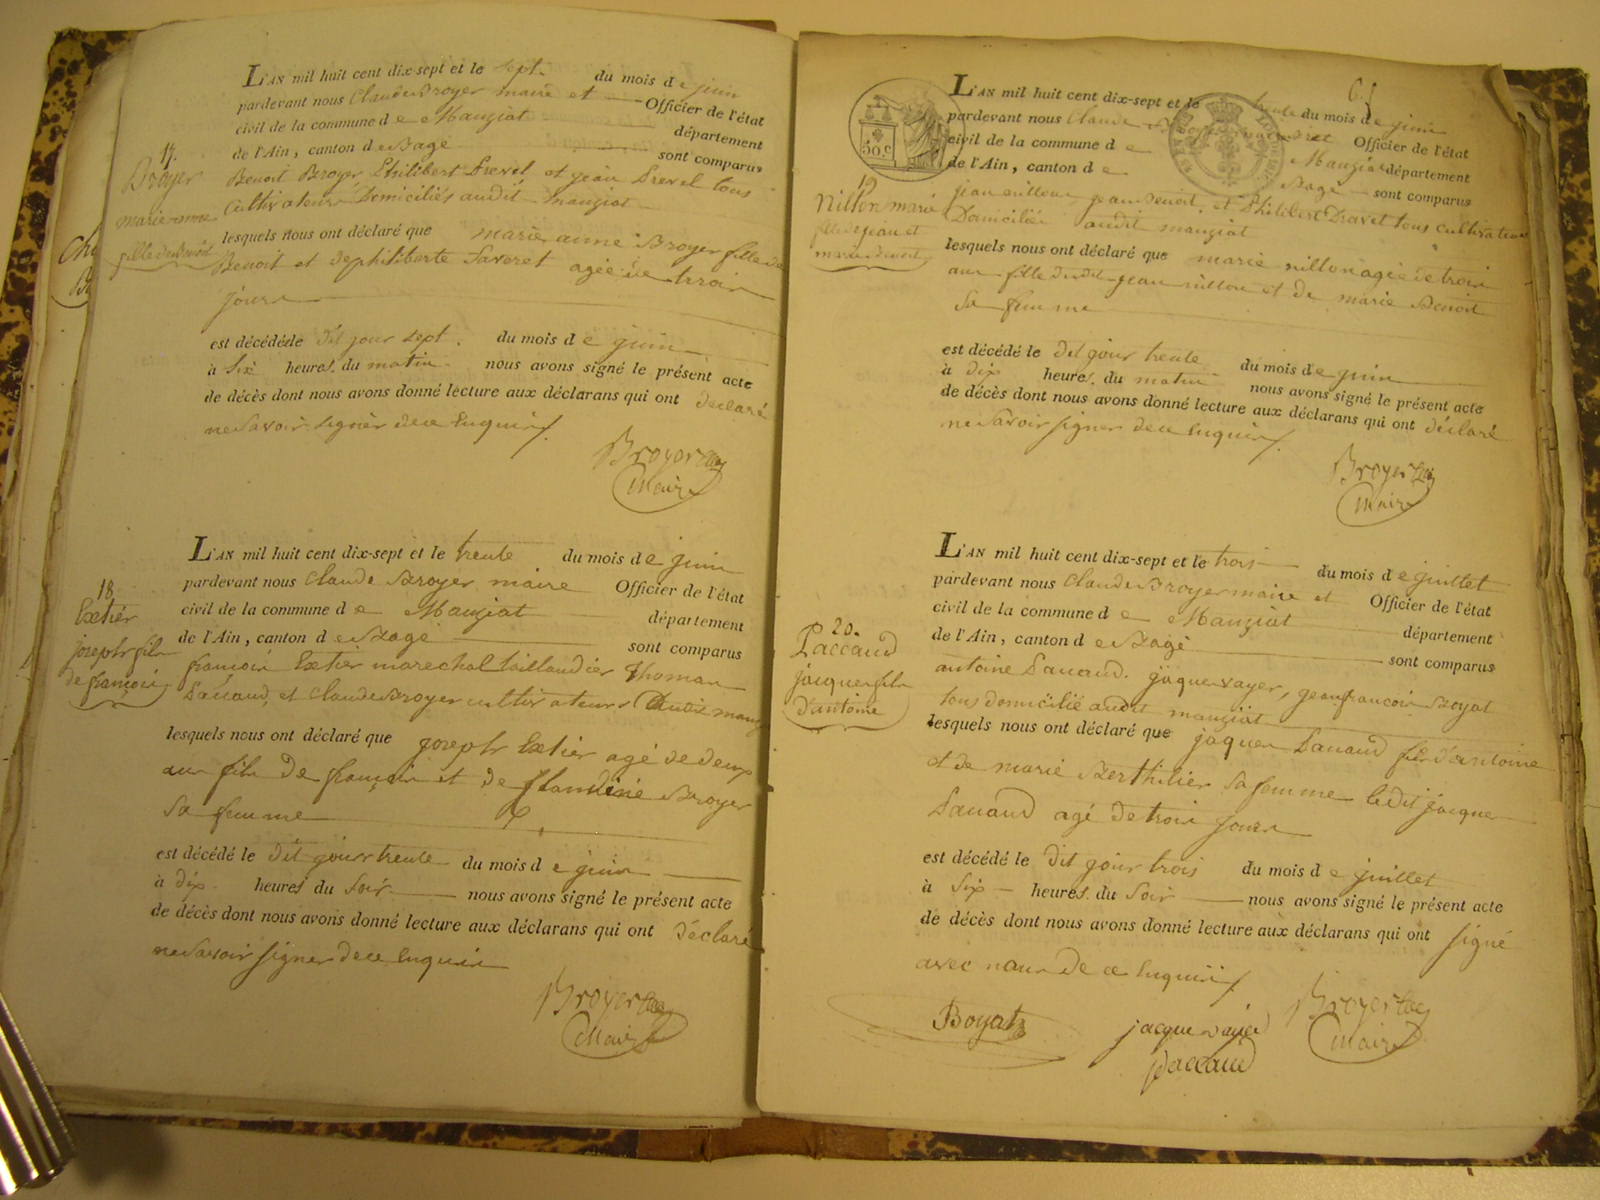 L'AN mil huit cent dix-sept et le sept du mois de juin
pardevant nous Claude Broyer maire et Officier de l'état
civil de la commune de Manziat département
de l'Ain, canton de Bagé sont comparus
Benoit Broyer Philibert Prevel et jean Prevel tous
Cultivateurs Domiciliés audit manziat
lesquels nous ont déclaré que marie anne Broyer fille de
Benoit et de philiberte agée de trois
jours
est décédé le dit jour sept du mois de juin
à six heures du matin nous avons signé le présent acte
de décès dont nous avons donné lecture aux déclarans qui ont déclaré
ne savoir signer de ce Enquis
Broyer
Maire
17.
Broyer
marie anne
fille de Benoit
L'AN mil huit cent dix-sept et le trente du mois de juin
pardevant nous Claude Broyer maire Officier de l'état
civil de la commune de Manziat département
de l'Ain, canton de Bagé sont comparus
françois Extier marechal taillandier Thomas
Pacaud, et Claude Broyer cultivateurs
lesquels nous ont déclaré que joseph Extier agé de deux
ans fils de françois et de flandine Broyer
Sa femme
est décédé le dit jour trente du mois de juin
à dix heures du soir nous avons signé le présent acte
de décès dont nous avons donné lecture aux déclarans qui ont déclaré
ne savoir signer de ce Enquis
Broyer
Maire
18
Extier
joseph fils
de françois
50 c.
L'AN mil huit cent dix-sept et le trente du mois de juin
pardevant nous Claude Officier de l'état
civil de la commune de Manziat département
de l'Ain, canton de Bagé sont comparus
jean nillon, jean Benoit, et Philibert tous cultivateurs
Domiciliés audit manziat
lesquels nous ont déclaré que marie nillon agée de trois
ans fille dudit jean nillon et de marie Benoit
sa femme
est décédé le dit jour trente du mois de juin
à dix heures du matin nous avons signé le présent acte
de décès dont nous avons donné lecture aux déclarans qui ont déclaré
ne savoir signer de ce Enquis
Broyer
Maire
19
Nillon marie
fille de jean et
marie Benoit
L'AN mil huit cent dix-sept et le trois du mois de juillet
pardevant nous Claude Broyer maire et Officier de l'état
civil de la commune de Manziat département
de l'Ain, canton de Bagé sont comparus
antoine Pacaud, jaque vayer, jean françois Boyat
tous domicilié audit manziat
lesquels nous ont déclaré que jaques Pacaud fils d'antoine
et de marie Berthilier sa femme ledit jacque
Pacaud agé de trois jours
est décédé le dit jour trois du mois de juillet
à six heures du soir nous avons signé le présent acte
de décès dont nous avons donné lecture aux déclarans qui ont signé
avec nous de ce Enquis
Boyat
jacque vayer
Broyer
Maire
paccaud
20.
Paccaud
jacque fils
d'antoine